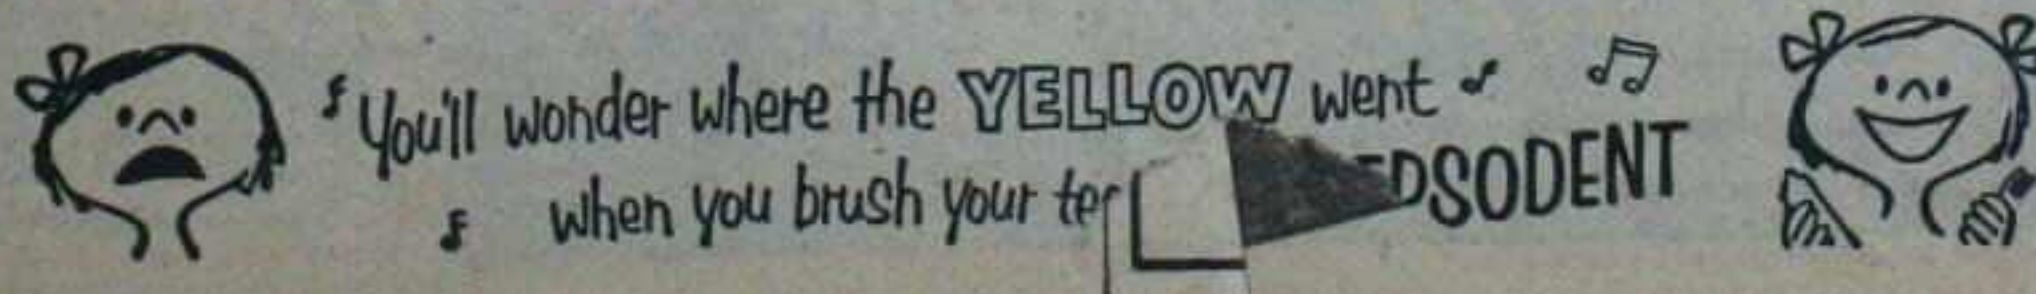 You'll wonder where the YELLOW went
when you brush your te SODENT